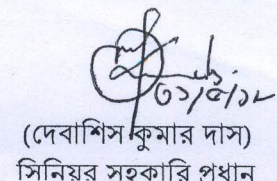 ৩১/৫/১৮
(দেবাশিস কুমার দাস)
সিনিয়র সহকারি প্রধান